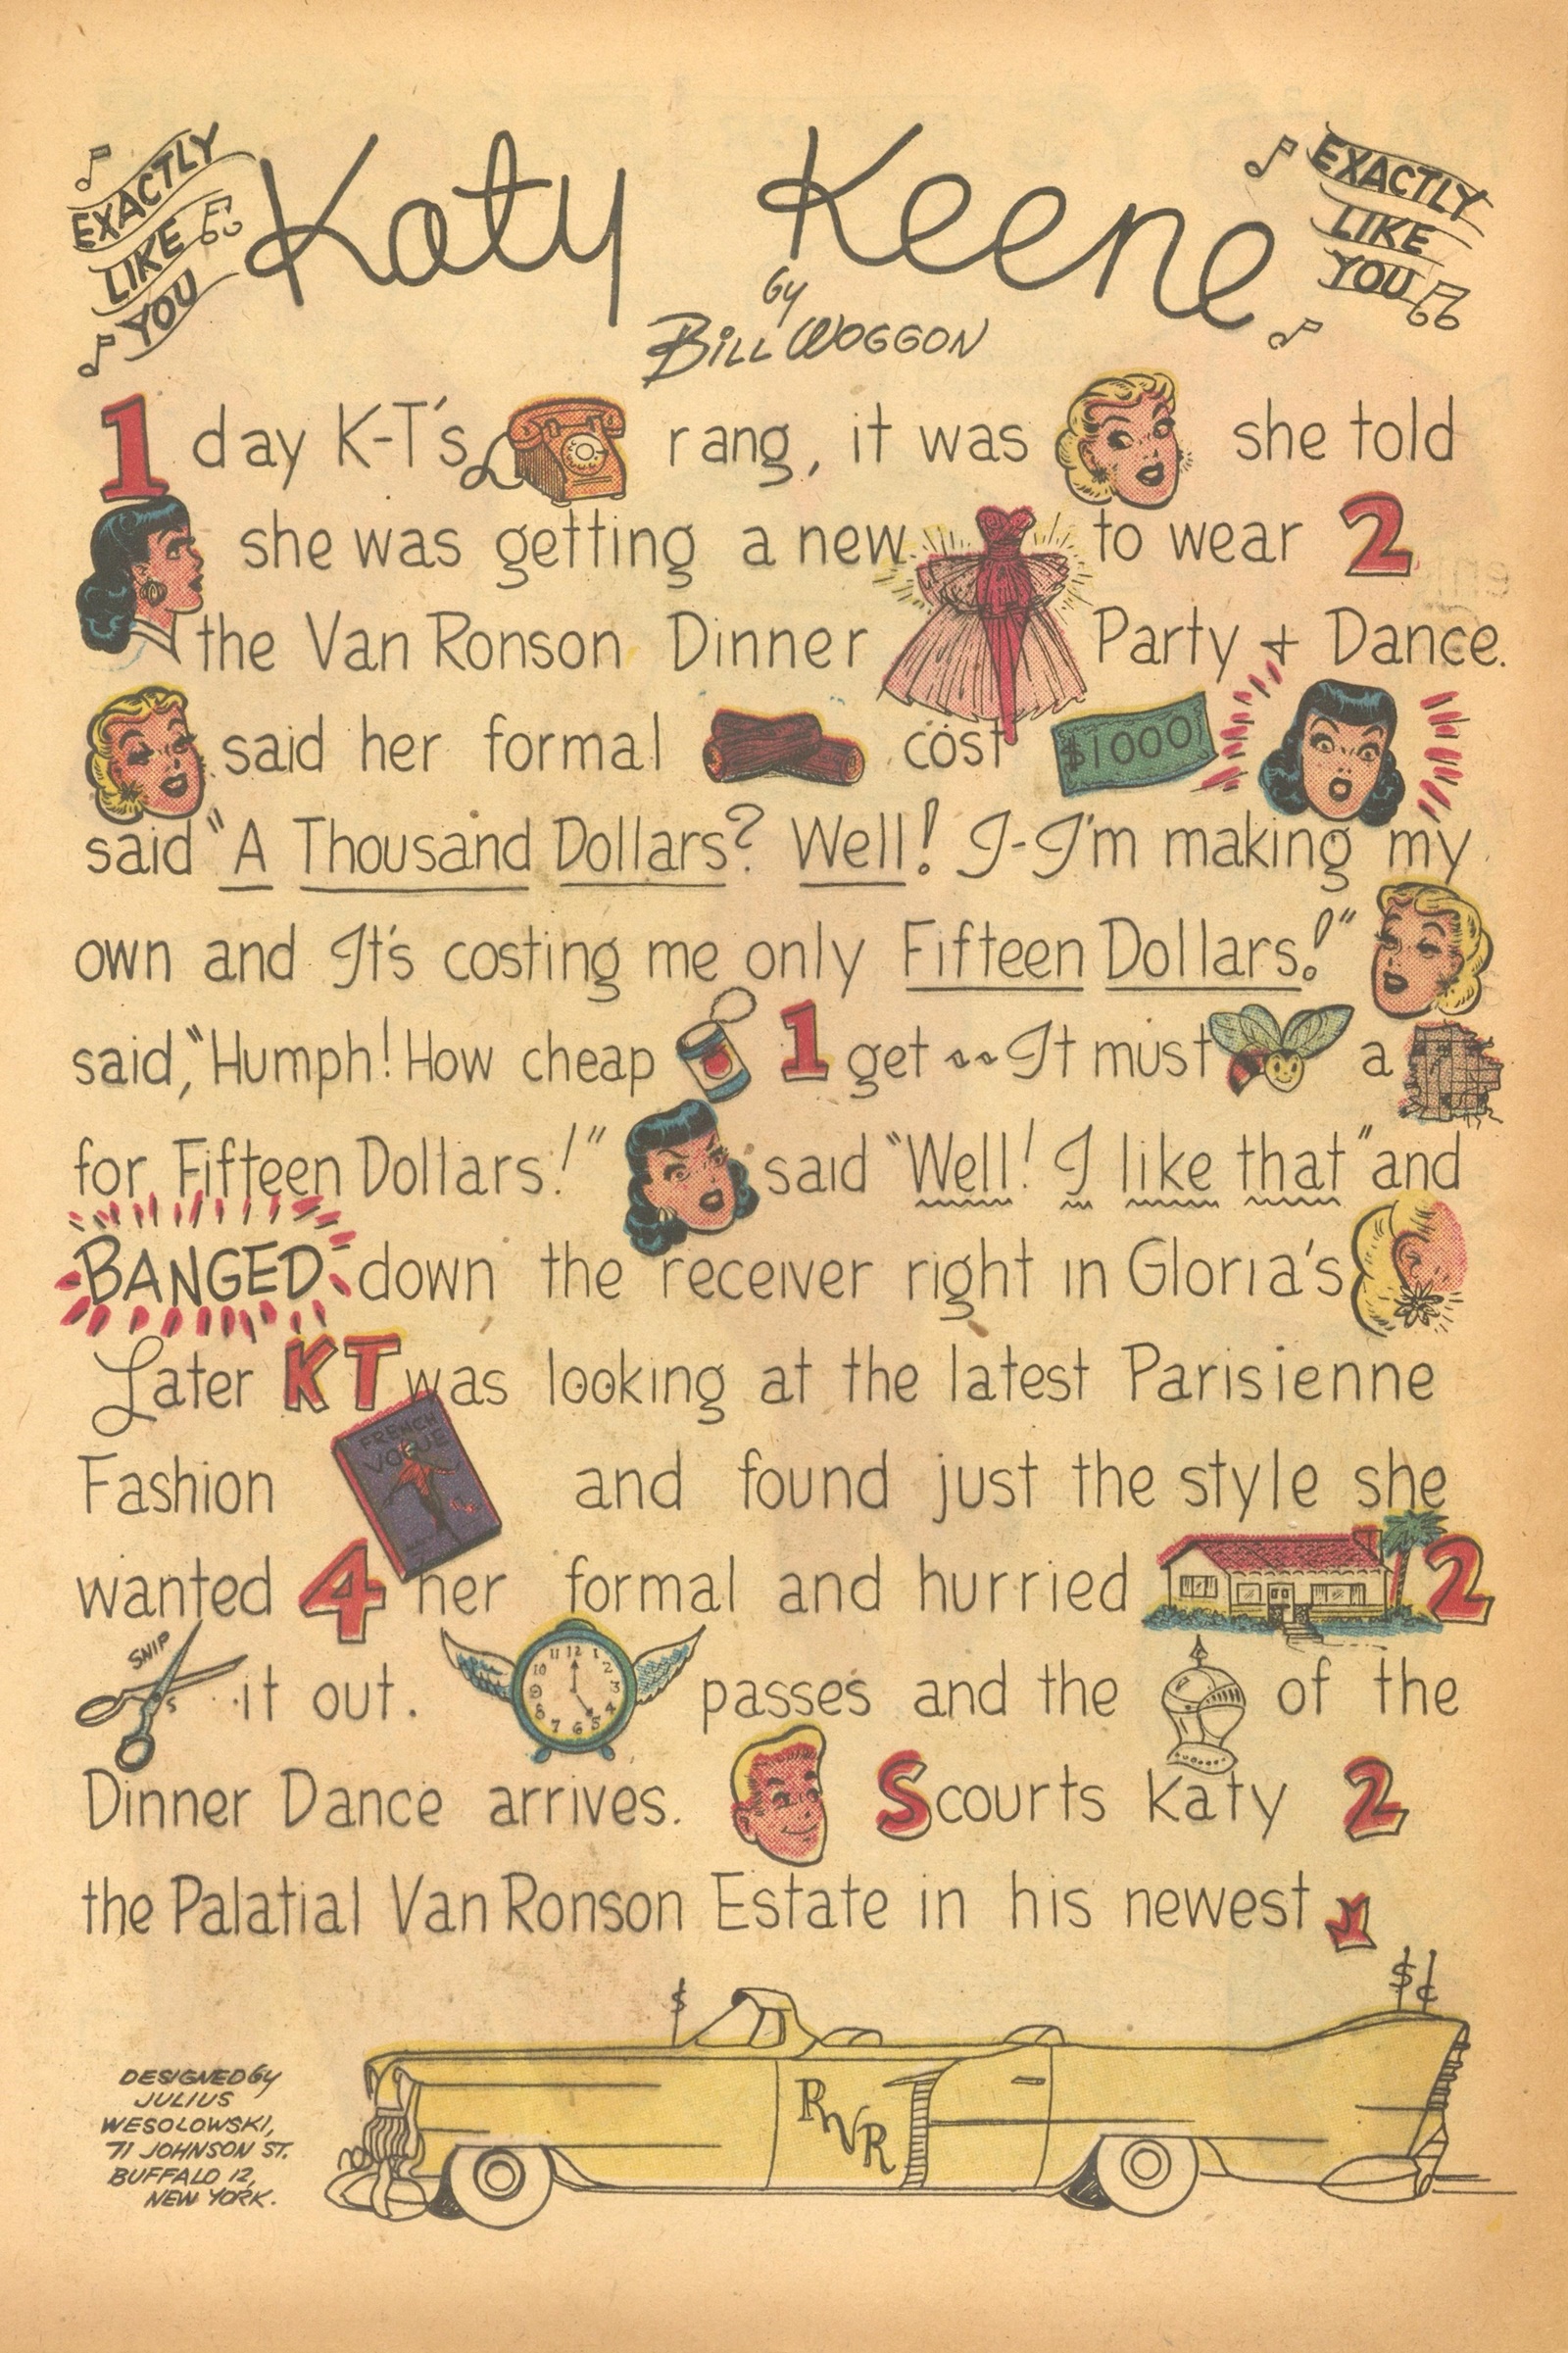 EXACTLY
LIKE
YOU
Katy Keene
by
BILL WOGGON
EXACTLY
LIKE
YOU
1 day K-T's rang, it was she told
she was getting a new to wear 2
the Van Ronson Dinner Party + Dance.
said her formal cost $1000
said "A Thousand Dollars? Well! I-I'm making my
own and It's costing me only Fifteen Dollars!"
said, "Humph! How cheap 1 get ~~ It must a
for Fifteen Dollars!" said "Well! I like that" and
BANGED down the receiver right in Gloria's
Later KT was looking at the latest Parisienne
FRENCH
VOGUE
Fashion and found just the style she
wanted 4 her formal and hurried 2
SNIP
it out. passes and the of the
11 12 1 2 3 4 5 6 7 8 9 10
Dinner Dance arrives. Scourts Katy 2
the Palatial Van Ronson Estate in his newest
$
$¢
RVR
DESIGNED BY
JULIUS
WESOLOWSKI,
71 JOHNSON ST.
BUFFALO 12,
NEW YORK.